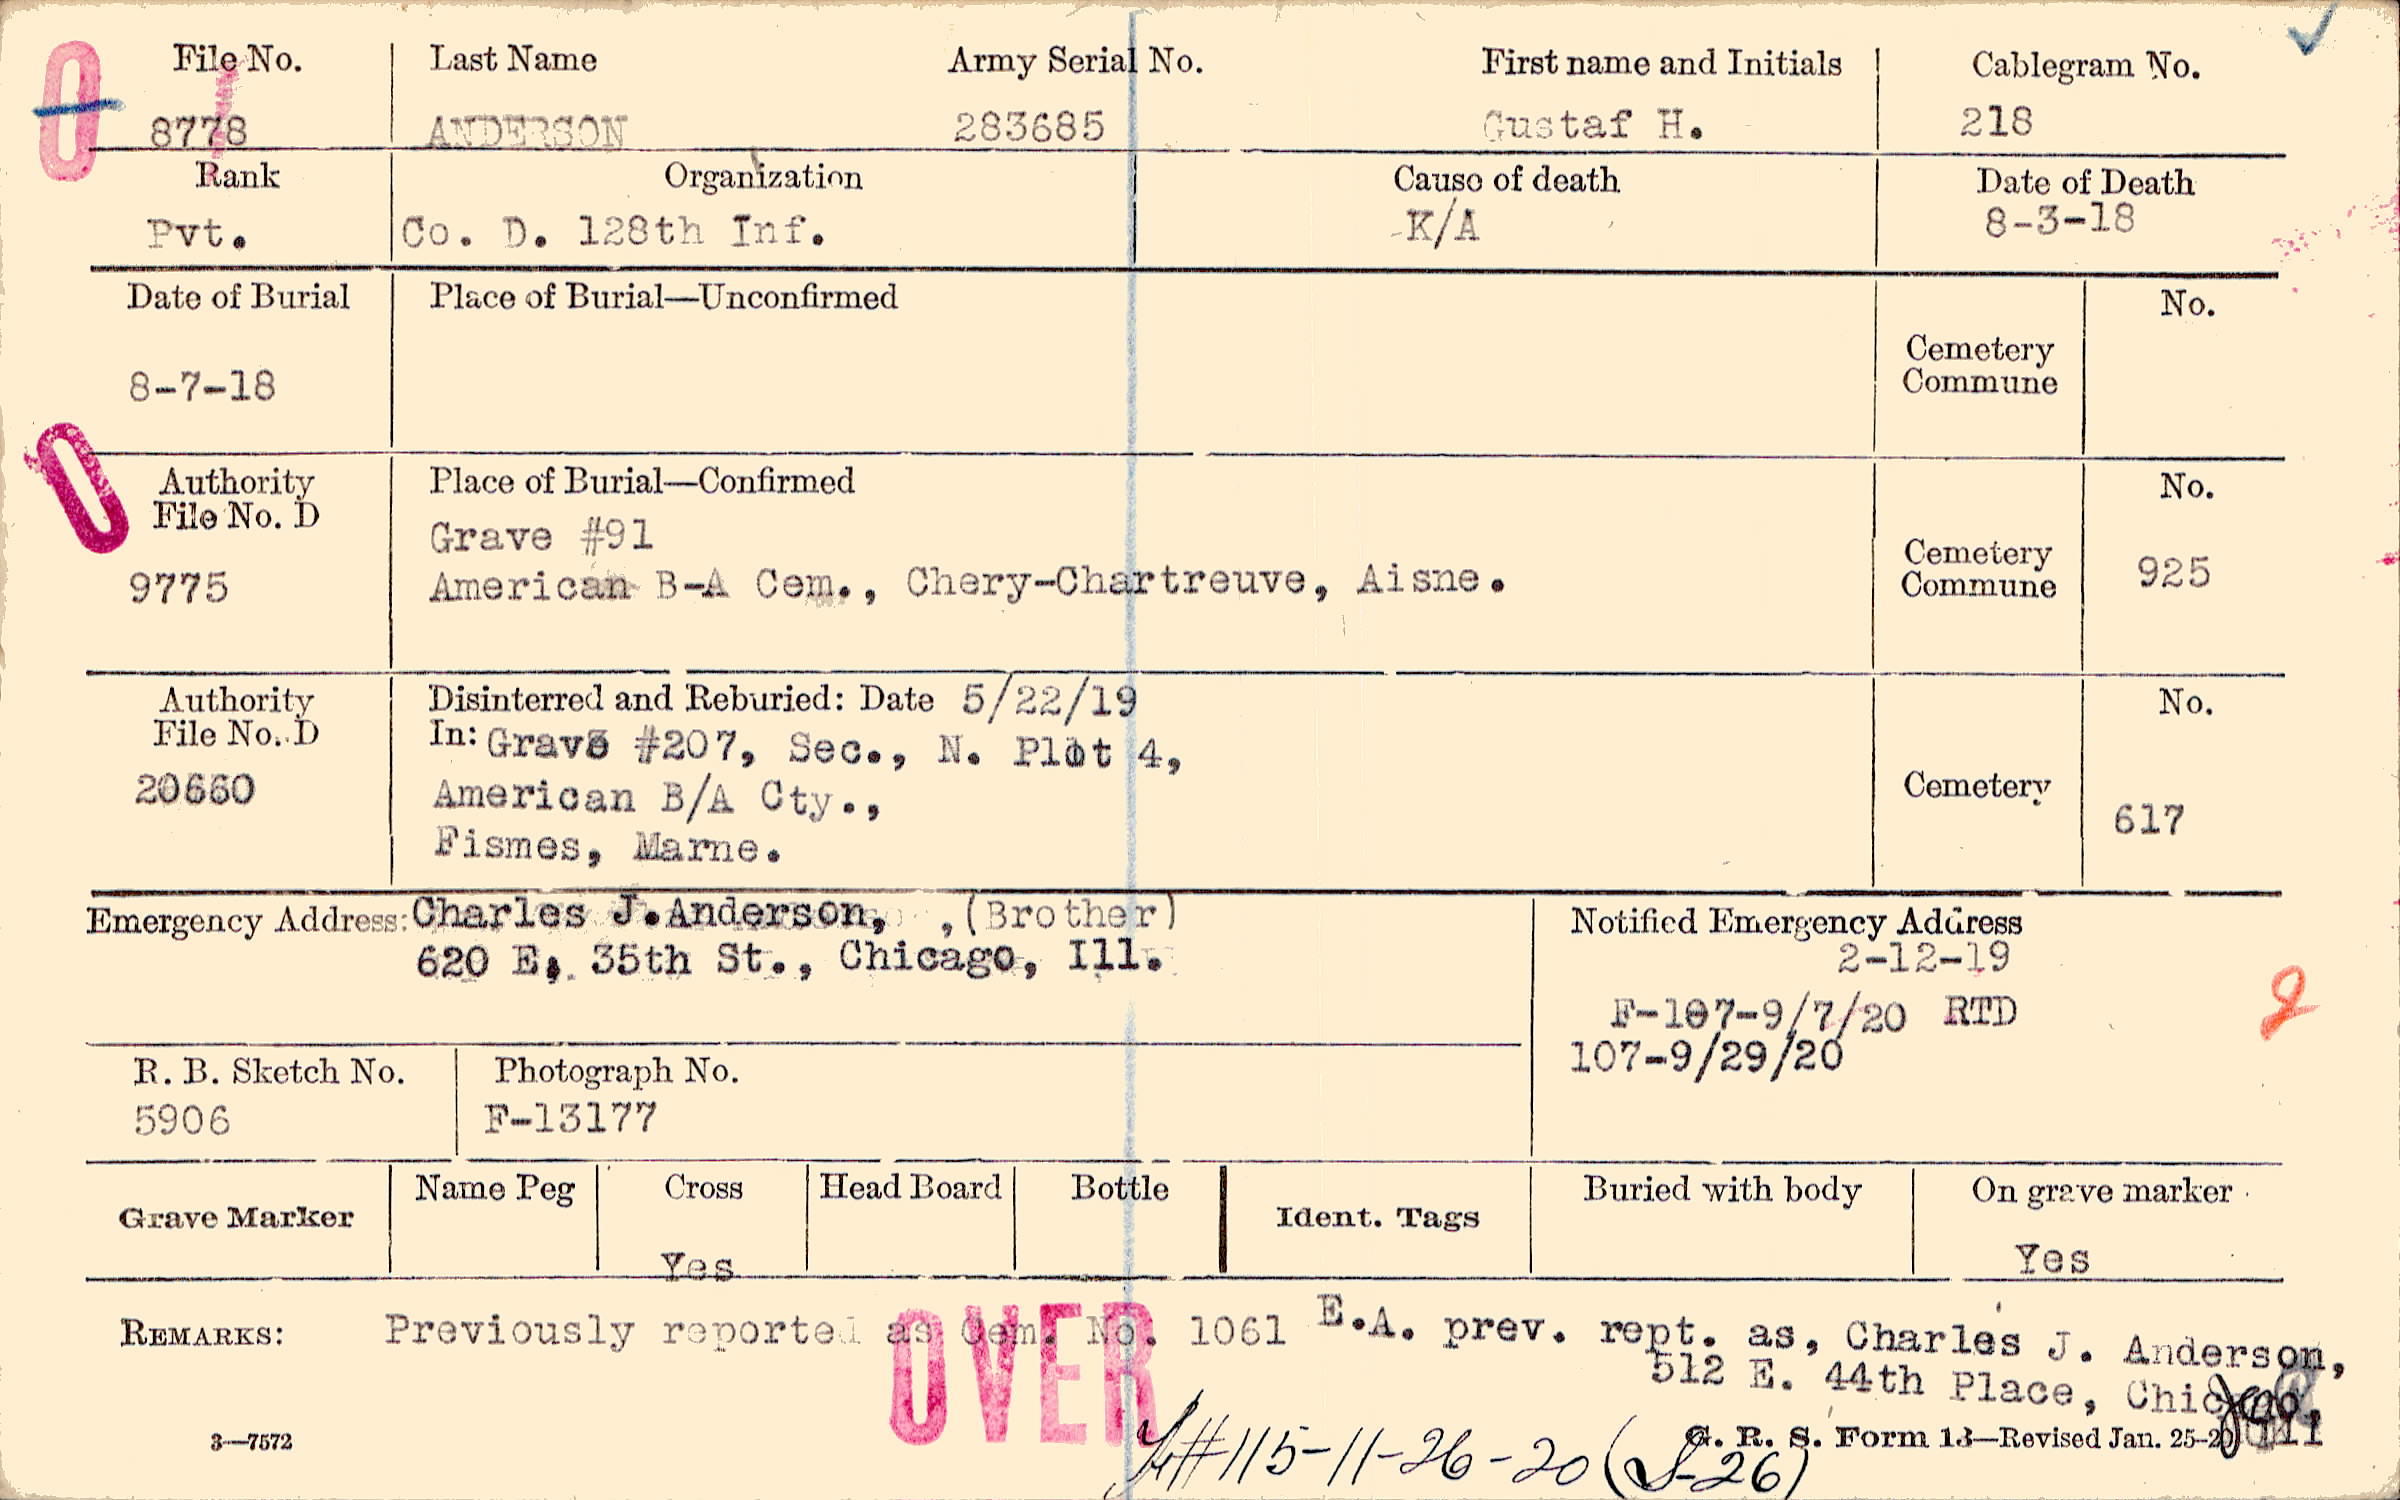 File No. Last Name Army Serial No. First name and Initials Cablegram No.
8778 ANDERSON 283685 Gustaf H. 218
Rank Organization Cause of death Date of Death
Pvt. Co. D. 128th Inf. K/A 8-3-18
Date of Burial Place of Burial—Unconfirmed No.
Cemetery
Commune
8-7-18
Authority Place of Burial—Confirmed No.
File No. D
Grave #91
Cemetery
Commune
9775 American B-A Cem., Chery-Chartreuve, Aisne. 925
Authority Disinterred and Reburied: Date 5/22/19 No.
File No. D In: Grave #207, Sec., N. Plot 4,
20660 American B/A Cty., Cemetery
Fismes, Marne. 617
Emergency Address: Charles J. Anderson, ,(Brother) Notified Emergency Address
620 E. 35th St., Chicago, Ill. 2-12-19
F-107-9/7/20 RTD
107-9/29/20
R. B. Sketch No. Photograph No.
5906 F-13177
Grave Marker Name Peg Cross Head Board Bottle Ident. Tags Buried with body On grave marker
Yes Yes
REMARKS: Previously reported as Cem. No. 1061 E.A. prev. rept. as, Charles J. Anderson,
512 E. 44th Place, Chicago,
OVER
3—7572 G. R. S. Form 13—Revised Jan. 25-20 Ill
#115-11-26-20 (S-26)